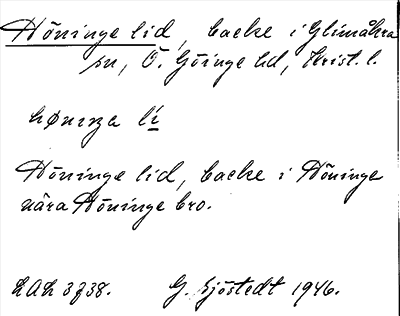 Höninge lid, backe i Glimåkra
sn, Ö. Göinge hd, Krist. l.
Höninge lid, backe i Höninge
nära Höninge bro.
LAL 3738. G. Sjöstedt 1946.